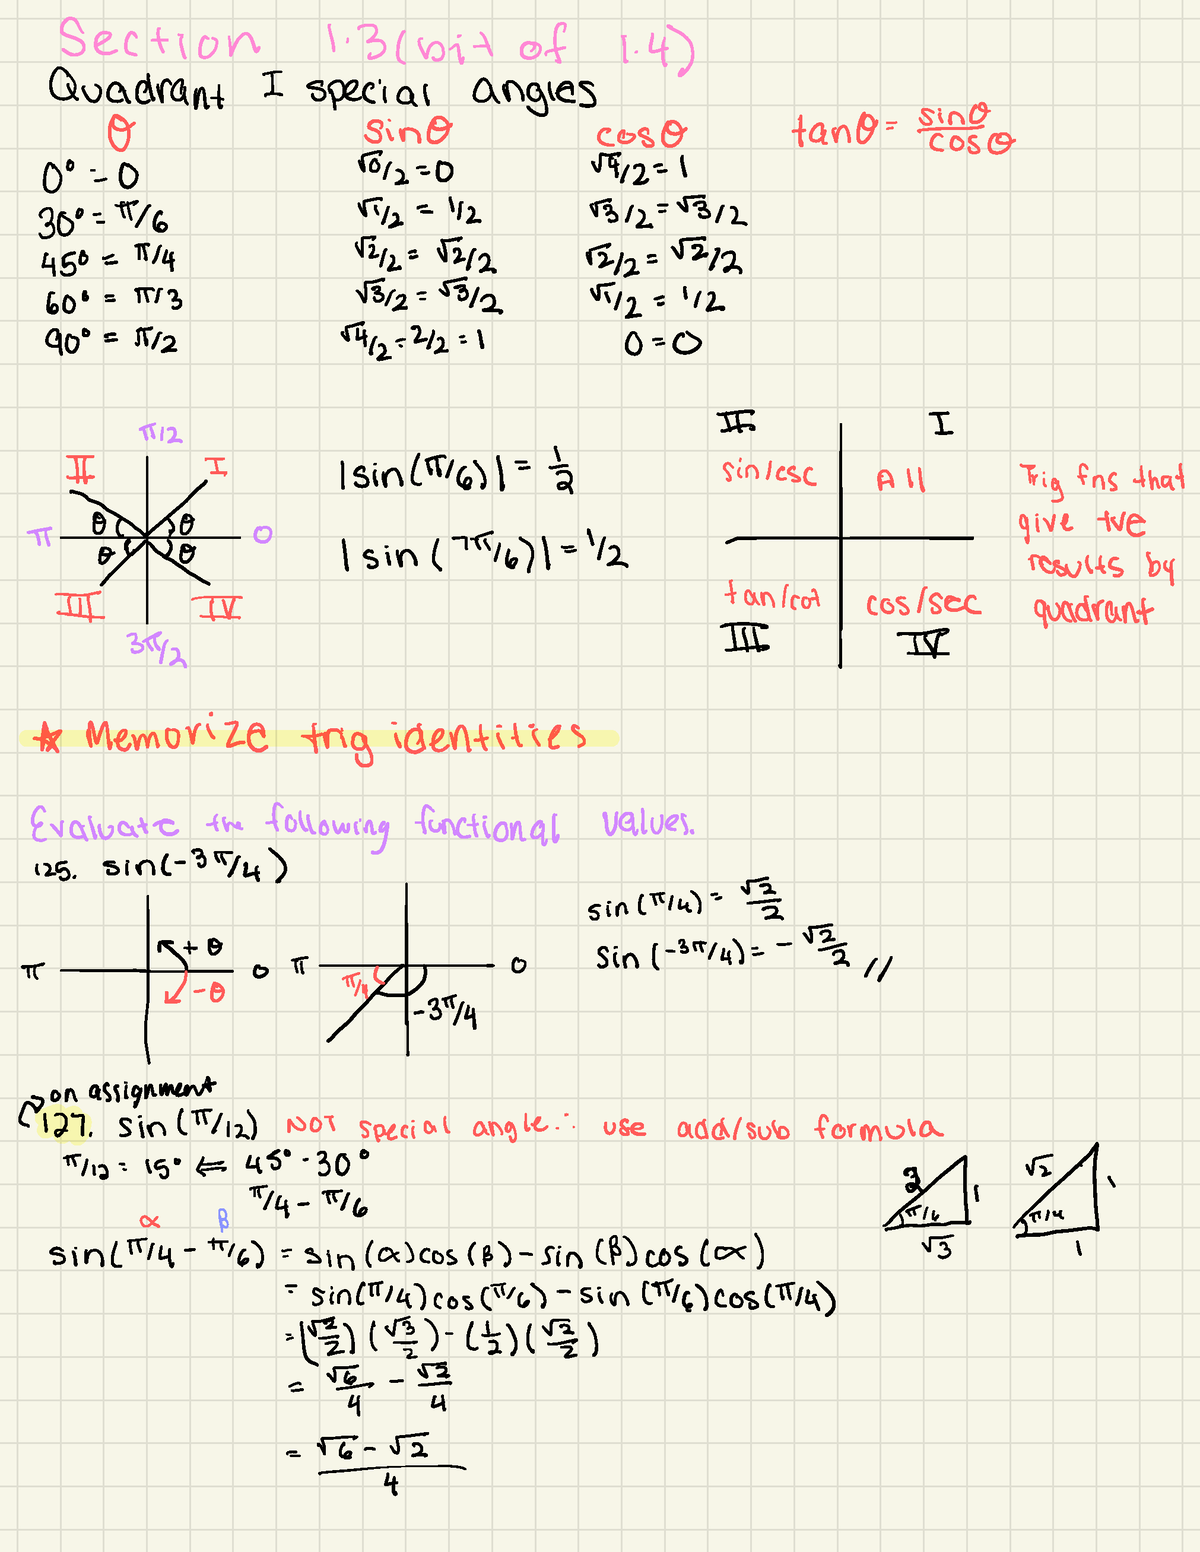 Section 1.3 (bit of 1.4)
Quadrant I special angles
θ sinθ cosθ tanθ = sinθ/cosθ
0° = 0 √0/2 = 0 √4/2 = 1
30° = π/6 √1/2 = 1/2 √3/2 = √3/2
45° = π/4 √2/2 = √2/2 √2/2 = √2/2
60° = π/3 √3/2 = √3/2 √1/2 = 1/2
90° = π/2 √4/2 = 2/2 = 1 0 = 0
π/2
II I
π θ θ 0
θ θ
III IV
3π/2
|sin(π/6)| = 1/2
|sin(7π/6)| = 1/2
II I
sin/csc All
tan/cot cos/sec
III IV
Trig fns that
give +ve
results by
quadrant
★ Memorize trig identities
Evaluate the following functional values.
125. sin(-3π/4)
+θ
π 0
-θ
π 0
π/4
-3π/4
sin(π/4) = √2/2
sin(-3π/4) = -√2/2 //
on assignment
127. sin(π/12) NOT special angle ∴ use add/sub formula
π/12 = 15° ⇐ 45° - 30°
π/4 - π/6
α β
sin(π/4 - π/6) = sin(α)cos(β) - sin(β)cos(α)
= sin(π/4)cos(π/6) - sin(π/6)cos(π/4)
= (√2/2)(√3/2) - (1/2)(√2/2)
= √6/4 - √2/4
= √6 - √2/4
2 1
π/6
√3
√2 1
π/4
1